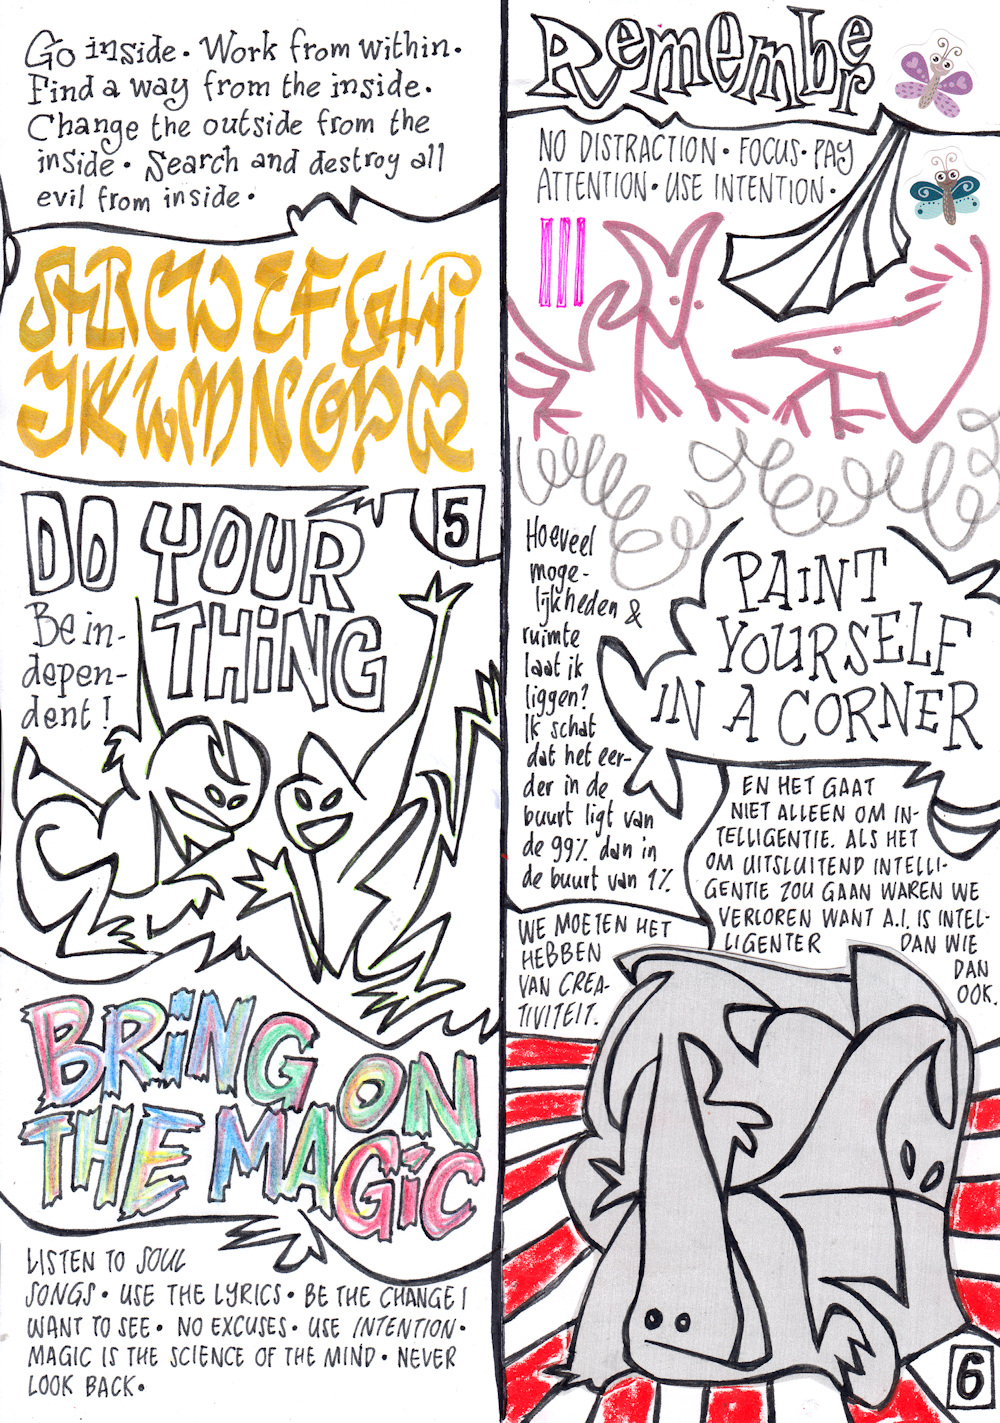 Go inside • Work from within •
Find a way from the inside •
Change the outside from the
inside • Search and destroy all
evil from inside •
ABCDEFGHI
JKLMNOPQ
DO YOUR
THiNG
5
Be in-
depen-
dent!
BRiNG ON
THE MAGiC
LISTEN TO SOUL
SONGS • USE THE LYRICS • BE THE CHANGE I
WANT TO SEE • NO EXCUSES • USE INTENTION •
MAGIC IS THE SCIENCE OF THE MIND • NEVER
LOOK BACK •
Remember
NO DISTRACTION • FOCUS • PAY
ATTENTION • USE INTENTION •
Hoeveel
moge-
lijkheden &
ruimte
laat ik
liggen?
Ik schat
dat het eer-
der in de
buurt ligt van
de 99% dan in
de buurt van 1%.
PAiNT
YOURSELF
IN A CORNER
EN HET GAAT
NIET ALLEEN OM IN-
TELLIGENTIE. ALS HET
OM UITSLUITEND INTELLI-
GENTIE ZOU GAAN WAREN WE
VERLOREN WANT A.I. IS INTEL-
LIGENTER DAN WIE
DAN
OOK.
WE MOETEN HET
HEBBEN
VAN CREA-
TIVITEIT.
6